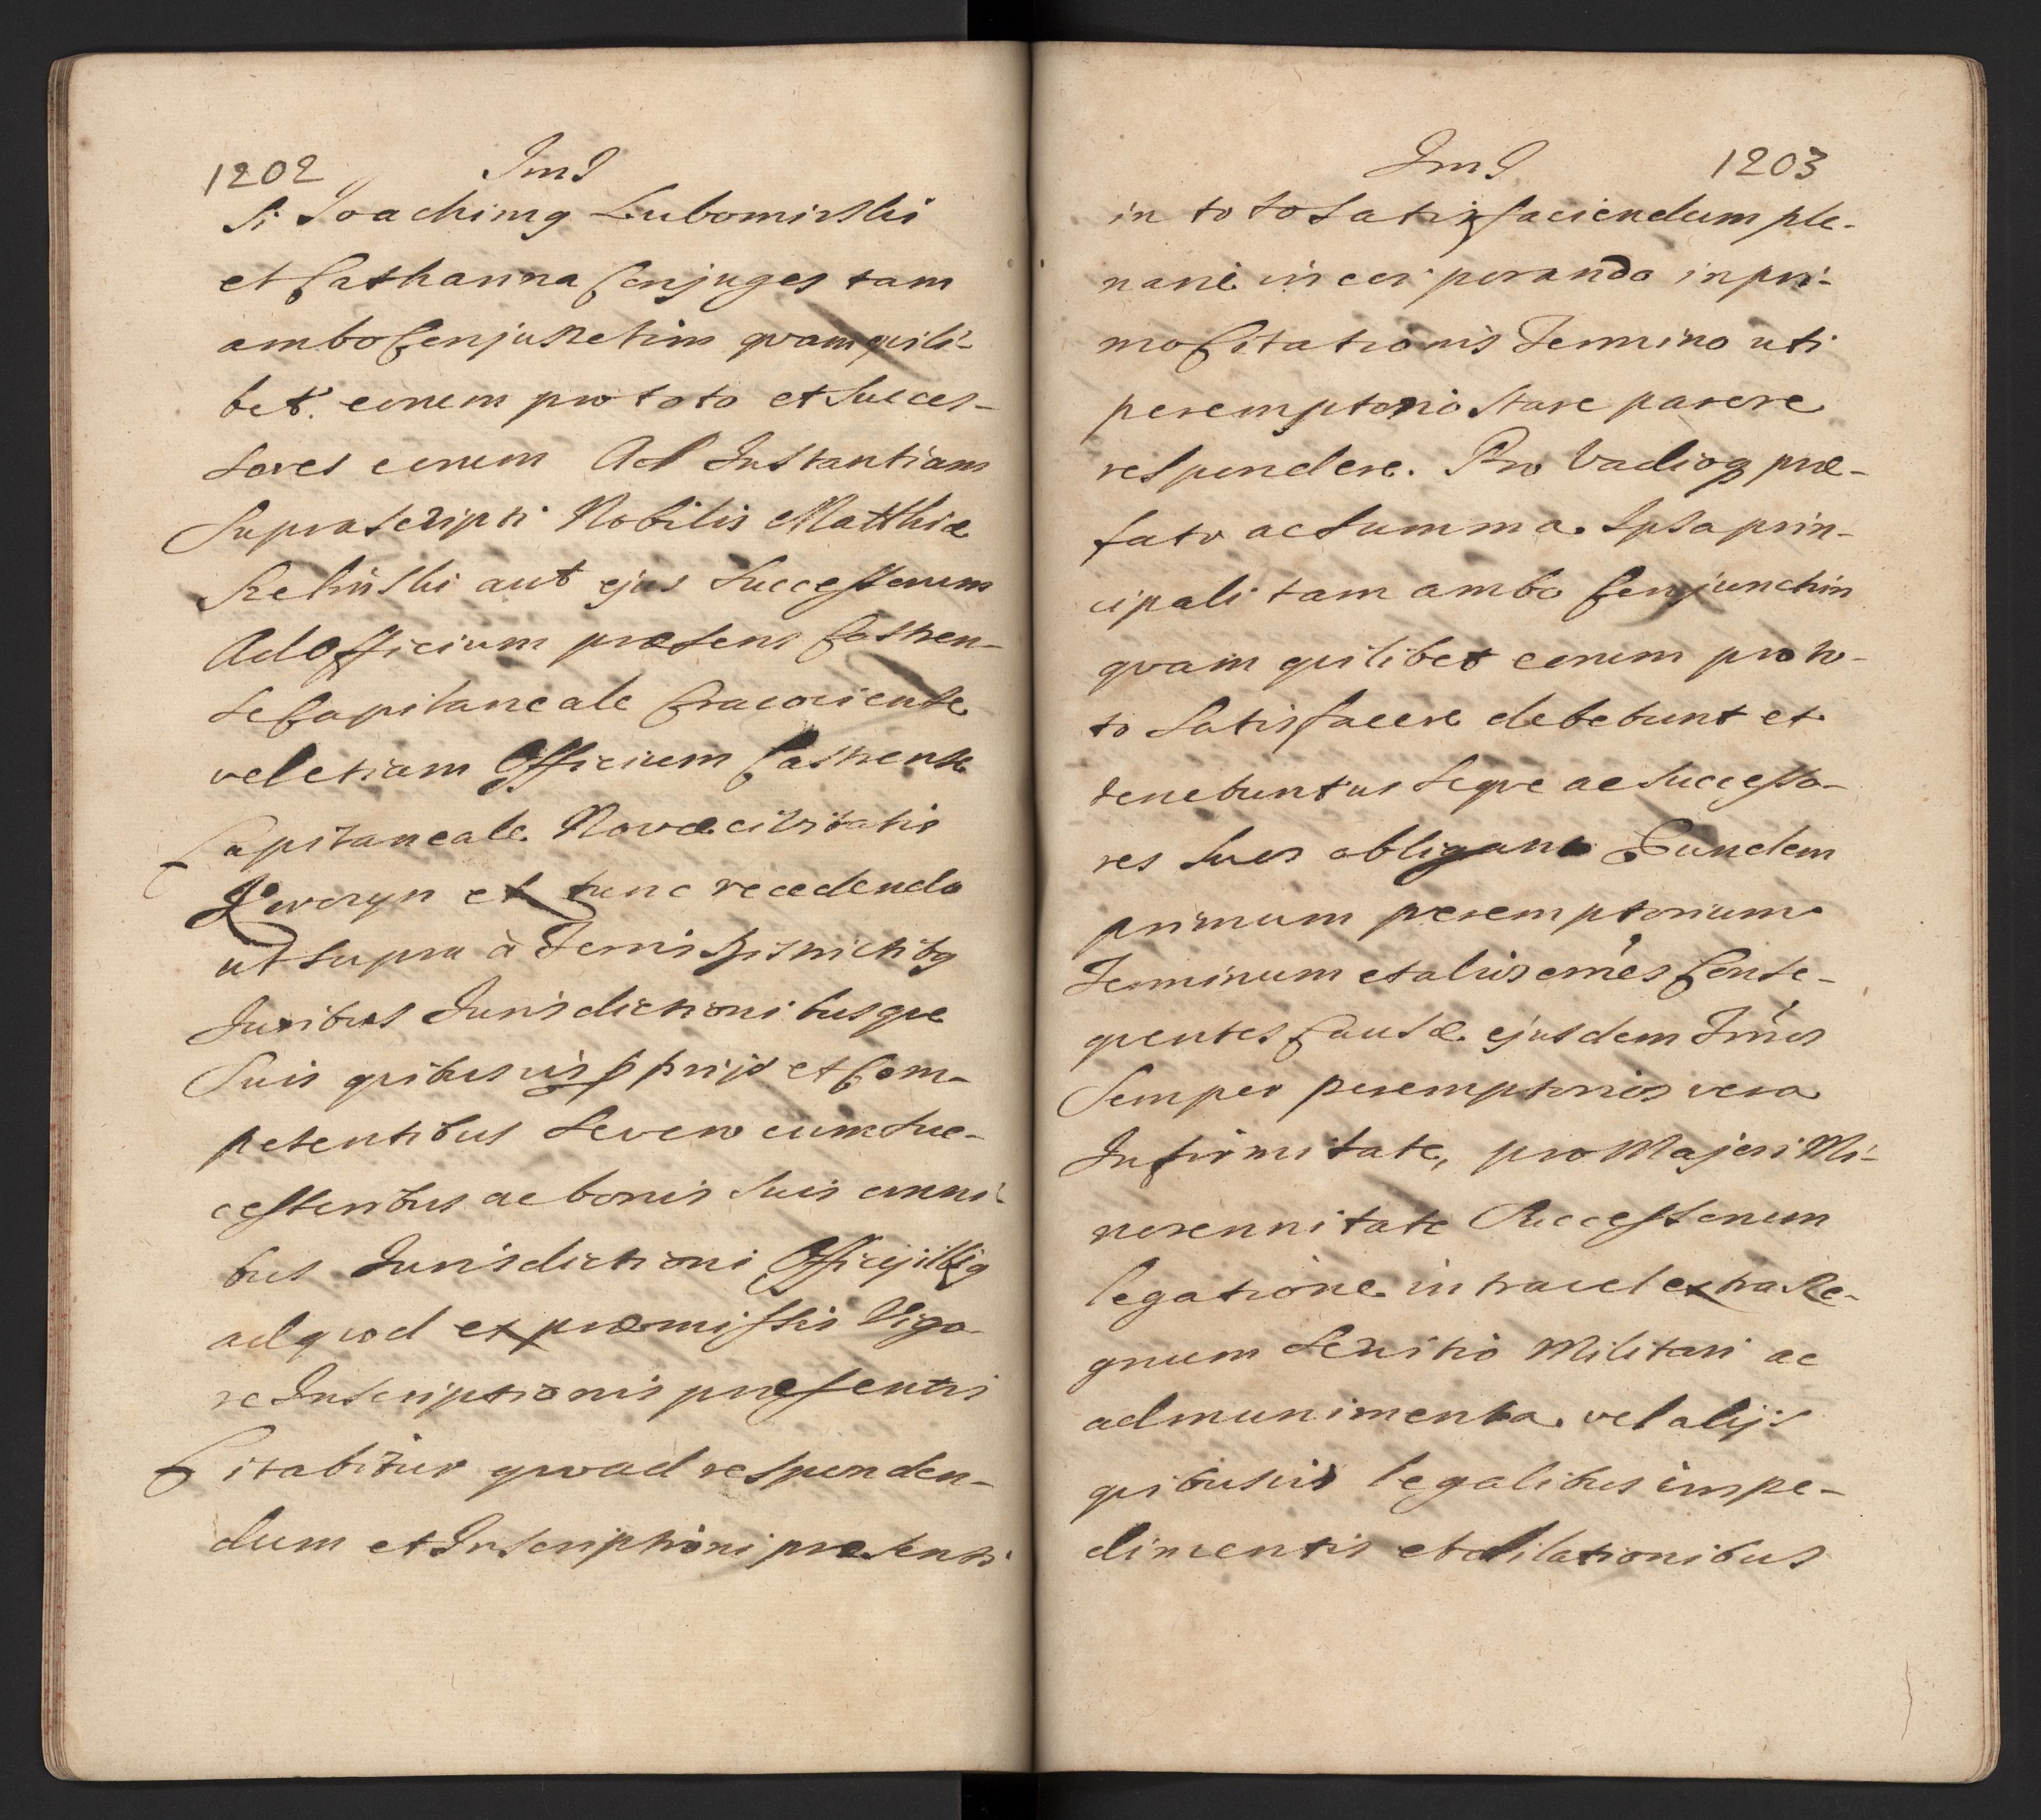 1202 JmJ
si Joachimq Lubomirski
et Catharina Conjuges tam
ambo Conjunctim qvam qvili-
bet eorum pro toto et Succes-
sores eorum Ad Instantiam
Suprascripti Nobilis Matthiæ
aut ejus Successorum
Ad Officium præsens Castren-
se Capitaneale Cracoviense
vel etiam Officium Castrense
Capitaneale Novæ civitatis
Korczyn et tunc recedendo
ut supra à Terris Districtibq
Juribus Jurisdictionibusqve
Suis qvibusvis pprijs et Com-
petentibus Se vero cum Suc-
cessoribus ac bonis Suis omni-
bus Jurisdictioni Officij illiq
ad qvod ex præmissis Vigo-
re Inscriptionis præsentis
Citabitur qvoad responden-
dum et Inscriptioni præsenti
JmJ 1203
in toto Satisfaciendum ple-
narie in cor porando in pri-
mo Citationis Termino uti
peremptorio Stare parere
respondere. Pro Vadioq præ-
fato ac Summa Ipsa prin-
cipali tam ambo Conjunctim
qvam qvilibet eorum pro to-
to Satisfacere debebunt et
tenebuntur Seqve ac Successo-
res Suos obligant Eundem
primum peremptorium
Terminum et alios omes Conse-
qventes Causæ ejusdem Tmos
Semper peremptorios vera
Infirmitate, pro Majori Mi-
norennitate Successorum
legatione intra vel extra Re-
gnum Servitio Militari ac
ad munimenta vel alijs
qvibusvis legalibus impe-
dimentis et dilationibus